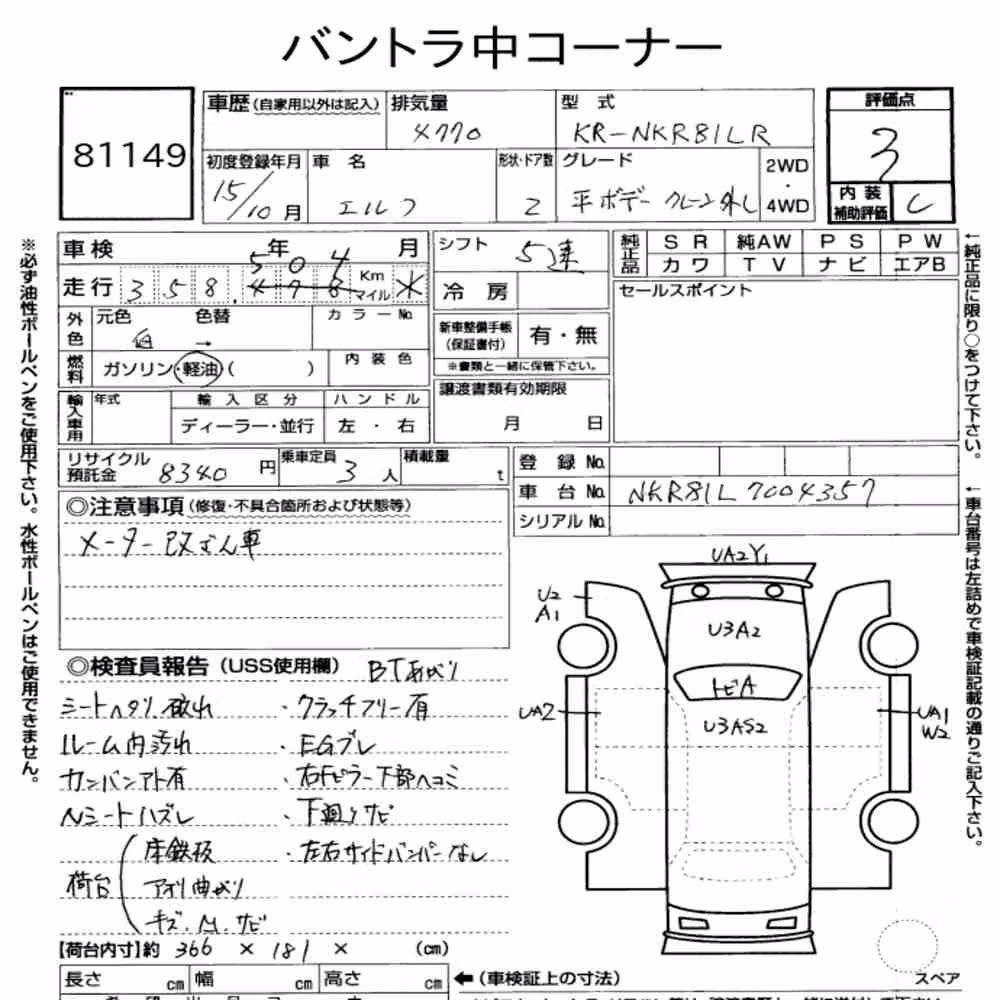 バントラ中コーナー
81149
車歴(自家用以外は記入)
排気量
4770
型 式
KR-NKR81LR
評価点
3
内装補助評価
C
初度登録年月
15/10月
車 名
エルフ
形状・ドア数
2
グレード
平ボデー クレーン外し
2WD・4WD
車検 年 月
走行 358,498 Km マイル
504
シフト
5速
冷 房
純正品
SR 純AW PS PW
カワ TV ナビ エアB
セールスポイント
外色
元色 色替
白 →
カラーNo.
燃料
ガソリン・軽油( )
内装色
新車整備手帳(保証書付)
有・無
※書類と一緒に保管下さい。
輸入車用
年式
輸入区分
ディーラー・並行
ハンドル
左・右
譲渡書類有効期限
月 日
リサイクル預託金
8340円
乗車定員
3人
積載量
t
登 録 No.
車 台 No.
NKR81L7004357
シリアルNo.
◎注意事項(修復・不具合箇所および状態等)
メーター改ざん車
◎検査員報告(USS使用欄) BTあがり
シートヘタリ 破れ ・クラッチフリー有
ルーム内汚れ ・EGブレ
カンバンアト有 ・右Fピラー下部ヘコミ
Nシートハズレ ・下廻りサビ
荷台
床鉄板 ・左右サイドバンパーなし
アオリ曲がり
キズ.凹.サビ
【荷台内寸】約 366 × 181 × (cm)
長さ cm 幅 cm 高さ cm
←(車検証上の寸法)
UA2Y1
U2
A1
U3A2
トビA
UA2
U3AS2
UA1
W2
スペア
※必ず油性ボールペンをご使用下さい。水性ボールペンはご使用できません。
←純正品に限り○をつけて下さい。
←車台番号は左詰めで車検証記載の通りご記入下さい。